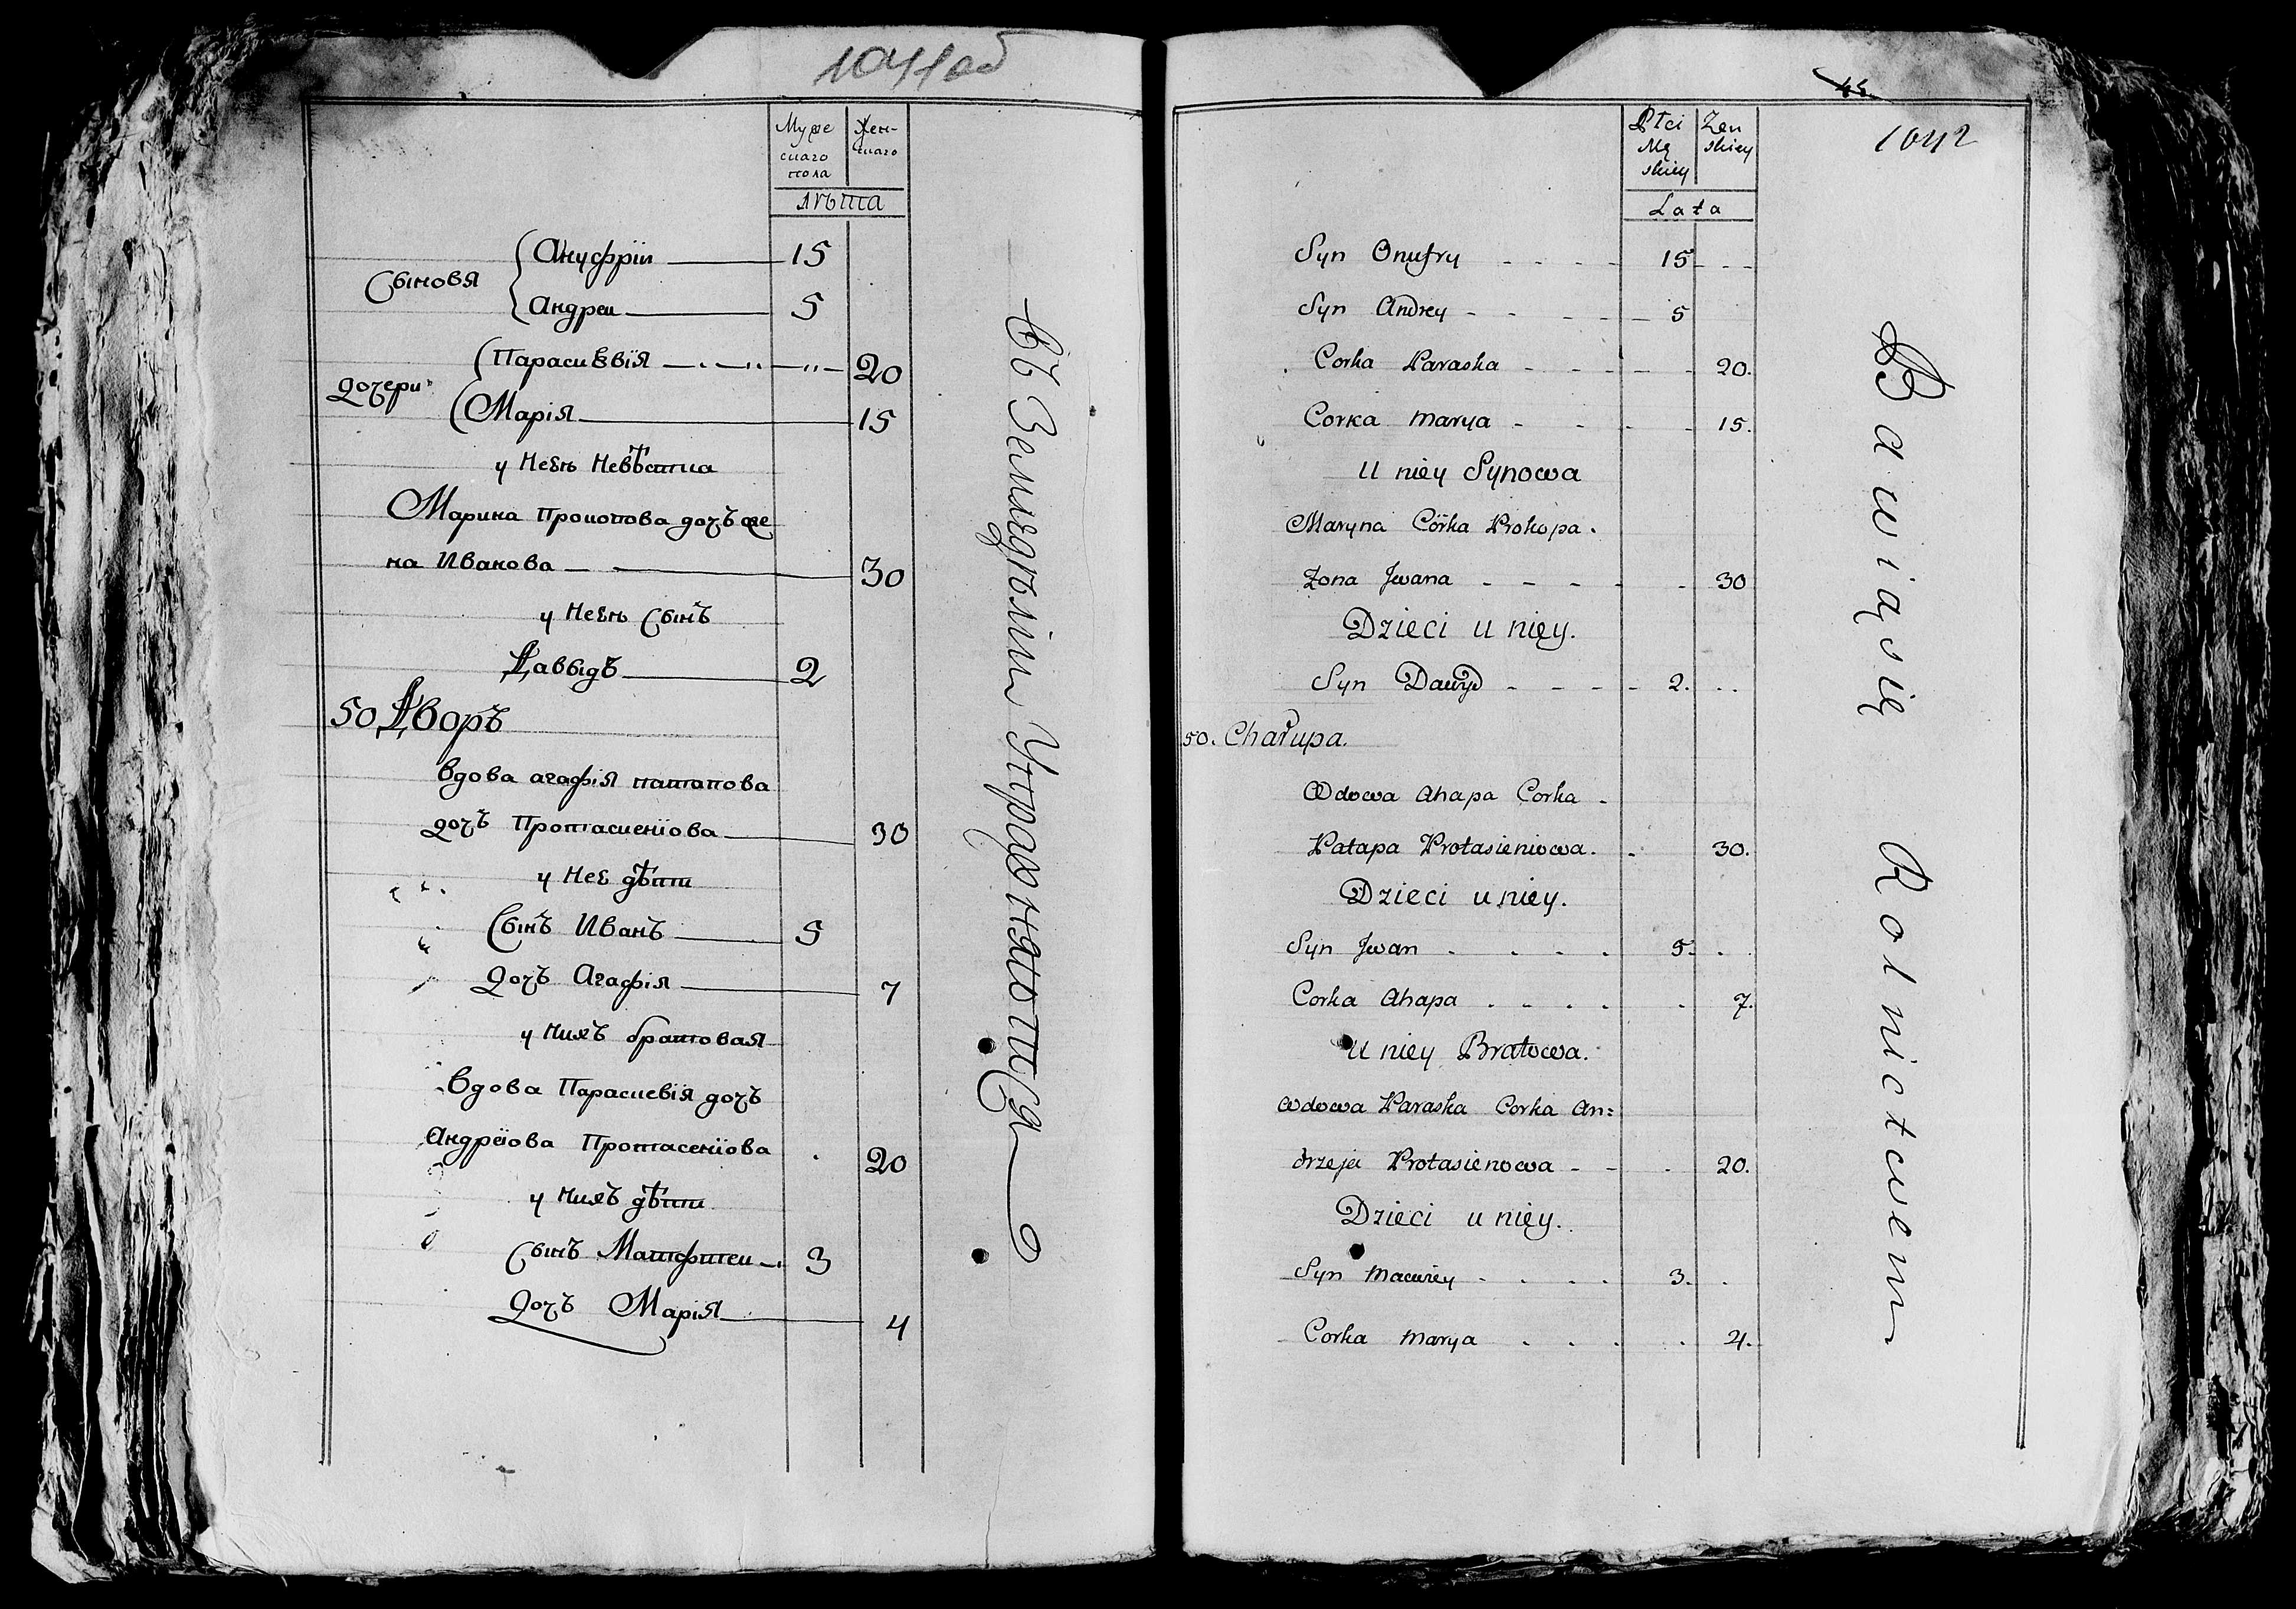 1041 об
Муже
скаго
пола
Жен-
скаго
лѣта
Сыновя
Ануфрiи 15
Андреи 5
дочери
Параскѣвiя 20
Марiя 15
у Неен Невѣстка
Марина Прокопова дочь же
на Иванова 30
у Неен Сынъ
Давыдъ 2
50 Дворъ
Вдова агафiя патапова
дочъ Протасенiова 30
у Нее дѣти
Сынъ Иванъ 5
Дочъ Агафiя 7
у нихъ братовая
Вдова Параскевiя дочъ
Андрѣiова Протасенiова 20
у нихъ дѣти
Сынъ Матфѣеи 3
Дочъ Марiя 4
Въ Земледѣлiи Упражняютса
45
1042
Płci
Mę
skiey
Żeń
skiey
Lata
Syn Onufry 15
Syn Andrey 5
Corka Paraska 20.
Corka Marya 15.
U niey Synowa
Maryna Córka Prokopa.
Zona Jwana 30
Dzieci u nięy.
Syn Dawyd 2.
50. Chałupa.
Wdowa Ahapa Corka
Patapa Protasieniowa. 30.
Dzieci u niey.
Syn Jwan 5.
Corka Ahapa 7.
U niey Bratowa.
Wdowa Paraska Corka An=
drzeja Protasienowa 20.
Dzieci u nięy.
Syn Macwiey 3.
Corka Marya 4.
Bawiąsię Rolnictwem